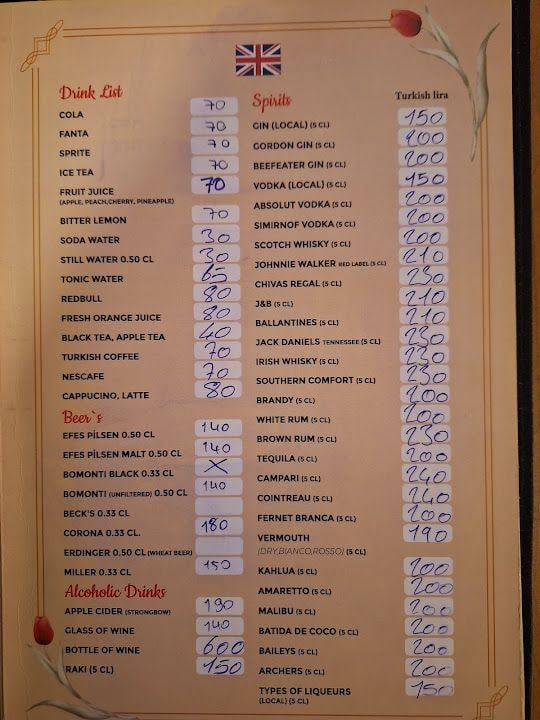 Drink List
COLA 70
FANTA 70
SPRITE 70
ICE TEA 70
FRUIT JUICE 70
(APPLE, PEACH,CHERRY, PINEAPPLE)
BITTER LEMON 70
SODA WATER 30
STILL WATER 0.50 CL 30
TONIC WATER 65
REDBULL 80
FRESH ORANGE JUICE 80
BLACK TEA, APPLE TEA 40
TURKISH COFFEE 70
NESCAFE 70
CAPPUCINO, LATTE 80
Beer`s
EFES PİLSEN 0.50 CL 140
EFES PİLSEN MALT 0.50 CL 140
BOMONTI BLACK 0.33 CL X
BOMONTI (UNFILTERED) 0.50 CL 140
BECK'S 0.33 CL
CORONA 0.33 CL. 180
ERDINGER 0.50 CL (WHEAT BEER)
MILLER 0.33 CL 150
Alcoholic Drinks
APPLE CIDER (STRONGBOW) 190
GLASS OF WINE 140
BOTTLE OF WINE 600
RAKI (5 CL) 150
Spirits Turkish lira
GIN (LOCAL) (5 CL) 150
GORDON GIN (5 CL) 200
BEEFEATER GIN (5 CL) 200
VODKA (LOCAL) (5 CL) 150
ABSOLUT VODKA (5 CL) 200
SIMIRNOF VODKA (5 CL) 200
SCOTCH WHISKY (5 CL) 200
JOHNNIE WALKER RED LABEL (5 CL) 210
CHIVAS REGAL (5 CL) 230
J&B (5 CL) 210
BALLANTINES (5 CL) 210
JACK DANIELS TENNESSEE (5 CL) 230
IRISH WHISKY (5 CL) 230
SOUTHERN COMFORT (5 CL) 230
BRANDY (5 CL) 200
WHITE RUM (5 CL) 200
BROWN RUM (5 CL) 230
TEQUILA (5 CL) 200
CAMPARI (5 CL) 240
COINTREAU (5 CL) 240
FERNET BRANCA (5 CL) 200
VERMOUTH 190
(DRY,BIANCO,ROSSO) (5 CL)
KAHLUA (5 CL) 200
AMARETTO (5 CL) 200
MALIBU (5 CL) 200
BATIDA DE COCO (5 CL) 200
BAILEYS (5 CL) 200
ARCHERS (5 CL) 200
TYPES OF LIQUEURS 150
(LOCAL) (5 CL)